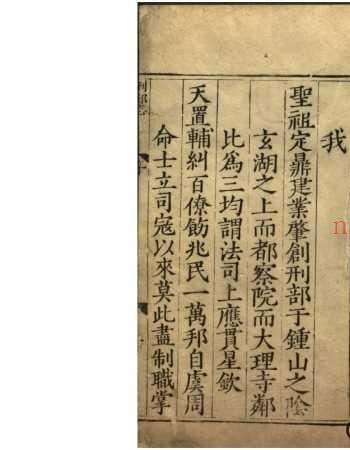 我
聖祖定鼎建業肇創刑部于鍾山之陰
玄湖之上而都察院而大理寺鄰
比爲三均謂法司上應貫星欽
天置輔糾百僚飭兆民一萬邦自虞周
命士立司寇以來莫此盡制職掌